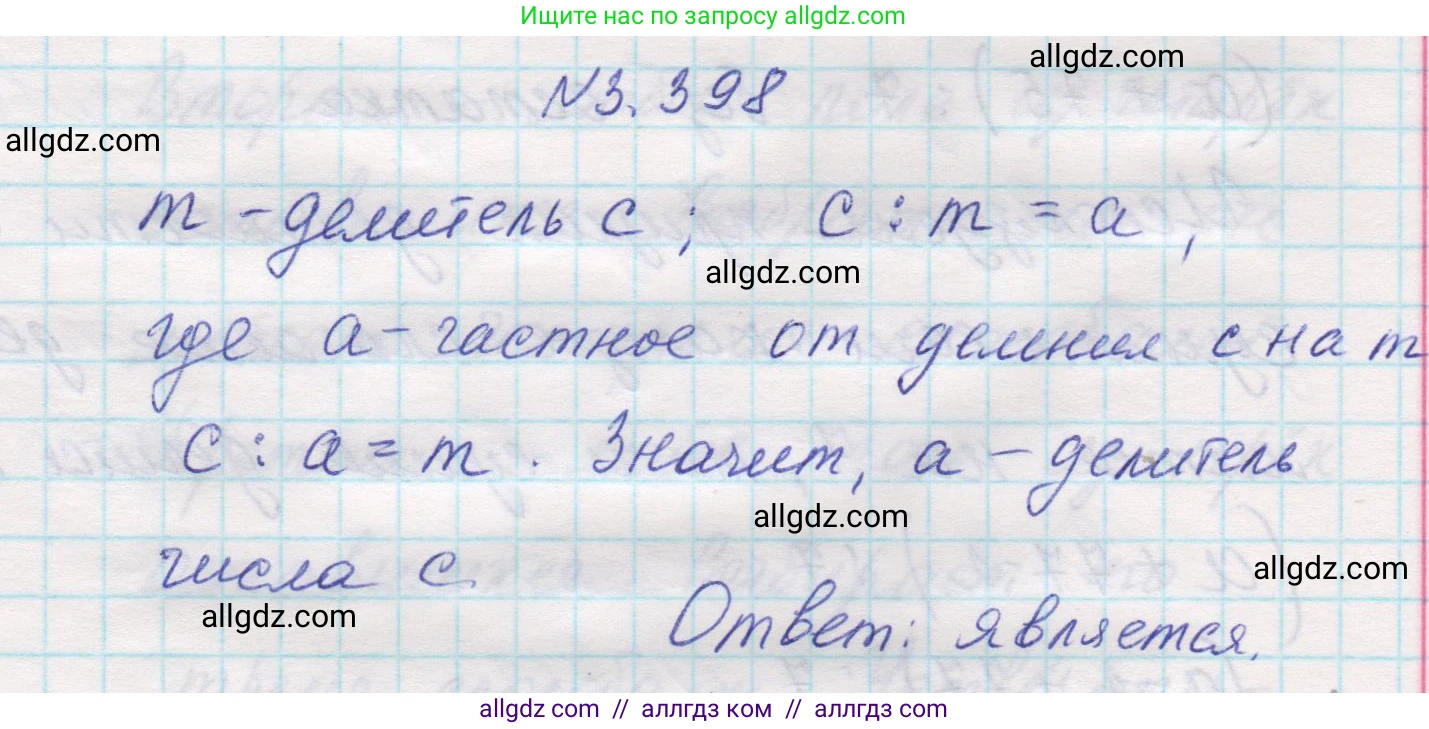 Ищите нас по запросу allgdz.com
allgdz.com
N3.398
allgdz.com
m - делитель c; c : m = a,
allgdz.com
где a - частное от делния c на m
c : a = m. Значит, a - делитель
allgdz.com
числа c.
allgdz.com
allgdz.com
Ответ: является.
allgdz com // аллгдз ком // аллгдз com